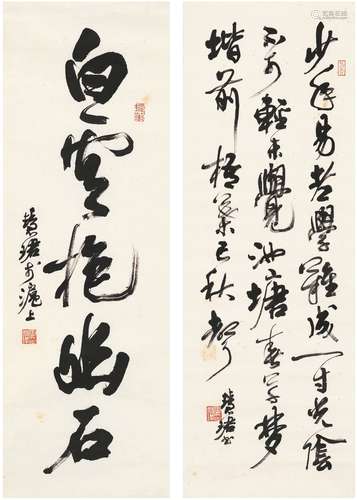 少年易老學難成一寸光陰
不可輕未覺池塘春草夢
堦前梧葉已秋聲
慧珺書
白雲抱幽石
慧珺於滬上